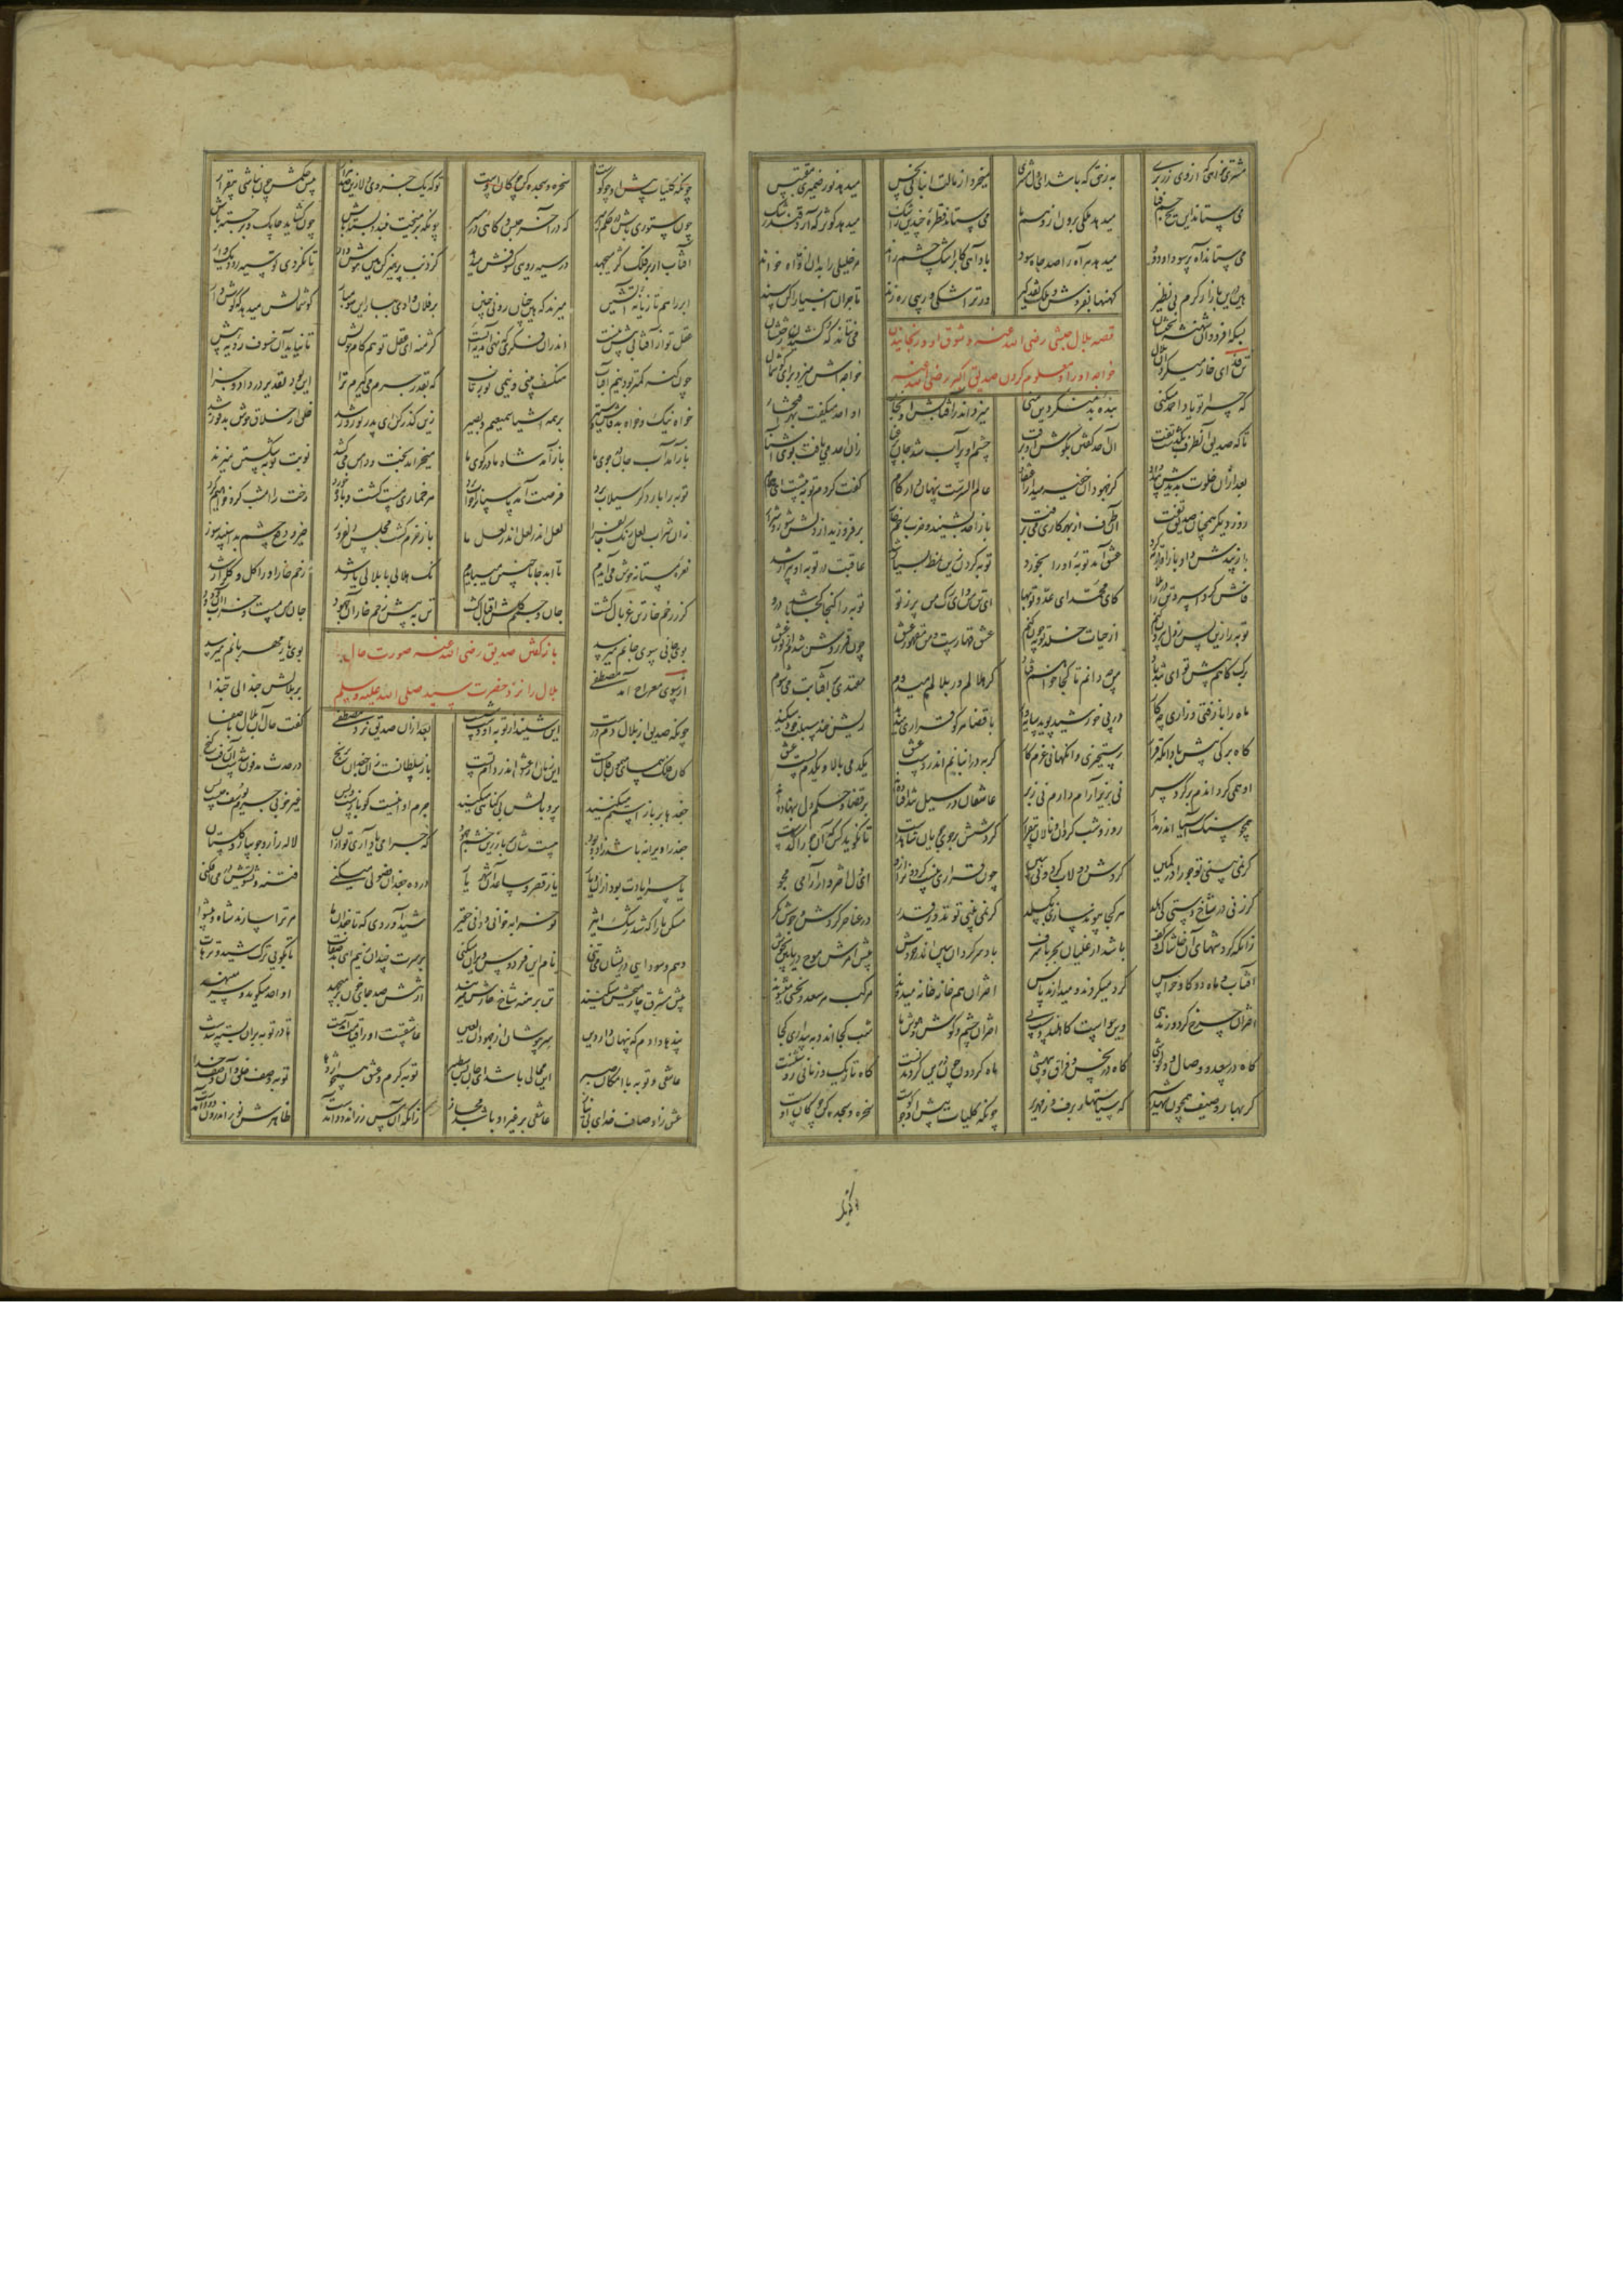 مشتری خواهی که از وی زر بری به ز حق که باشد ای دل مشتری میخرد از مالت انبانی نجس میدهد نور ضمیری مقتبس
می ستاند این یخ جسم فنا میدهد ملکی برون از وهم ما می ستاند قطره چندی ز اشک میدهد کوثر که آرد قند رشک
می ستاند آه پر سودا و دود میدهد هر آه را صد جاه سود باد آهی کابر اشک چشم راند مر خلیلی را بدان اواه خواند
هین درین بازار گرم بی نظیر کهنها بفروش و ملک نقد گیر ور ترا شکی و ریبی ره زند تاجران انبیا را کن سند
بسکه افزود آن شهنشه بختشان می نتاند که کشیدن رختشان
قصه بلال حبشی رضی الله عنه و شوق او و رنجانیدن
خواجه او را و معلوم کردن صدیق اکبر رضی الله عنه
تن فدای خار میکرد آن بلال خواجه اش میزد برای گوشمال
که چرا تو یاد احمد میکنی بنده بد منکر دین منی میزد اندر آفتابش او بخار او احد میگفت بهر افتخار
تا که صدیق آن طرف بر میگذشت آن احد گفتن بگوش او برفت چشم او پر آب شد جان پر عنا زان احد می یافت بوی آشنا
بعد از آن خلوت بدیدش پند داد کز جهودان خفیه میدار اعتقاد عالم السرست پنهان دار کام گفت کردم توبه پیشت ای همام
روز دیگر همچنان صدیق تفت آن طرف از بهر کاری می برفت باز احد بشنید و ضرب زخم خار بر فروزید از دلش شور و شرار
باز پندش داد باز او توبه کرد عشق آمد توبه او را بخورد توبه کردن زین نمط بسیار شد عاقبت از توبه او بیزار شد
فاش کرد اسپرد تن را در بلا کای محمد ای عدو توبها ای تن من وی رگ من پر ز تو توبه را گنجا کجا باشد درو
توبه را زین پس ز دل بیرون کنم از حیات خلد توبه چون کنم عشق قهارست و من مقهور عشق چون قمر روشن شدم از نور عشق
برگ کاهم پیش تو ای تند باد من چه دانم تا کجا خواهم فتاد گر هلالم ور بلالم میدوم مقتدی آفتابت میشوم
ماه را با زفتی و زاری چه کار در پی خورشید پوید سایه وار با قضا هر کو قراری میدهد ریش خند سبلت خود میکند
کاه برگی پیش باد آنگه قرار رستخیزی وانگهانی عزم کار گربه در انبانم اندر دست عشق یکدمی بالا و یکدم پست عشق
او همی گرداندم بر گرد سر نی بزیر آرام دارم نی زبر عاشقان در سیل تند افتاده اند بر قضای عشق دل بنهاده اند
همچو سنگ آسیا اندر مدار روز و شب گردان و نالان بیقرار گردشش بر جوی جویان شاهدست تا نگوید کس که آن جو راکدست
گر نمی بینی تو جو را در کمین گردش دولاب گردونی ببین چون قراری نیست گردون را ازو ای دل اختروار آرامی مجو
گر زنی در شاخ دستی کی هلد هر کجا پیوند سازی بگسلد گر نمی بینی تو تدویر قدر در عناصر گردش و جوشش نگر
زانکه گردشهای آن خاشاک و کف باشد از غلیان بحر با شرف باد سرگردان ببین اندر خروش پیش امرش موج دریا بین بجوش
آفتاب و ماه دو گاو خراس گرد میگردند و میدارند پاس اختران هم خانه خانه میدوند مرکب هر سعد و نحسی میشوند
اختران چرخ گر دورند هی وین حواست کاهلند و سست پی اختران چشم و گوش و هوش ما شب کجا اند و به بیداری کجا
گاه در سعد و وصال و دلخوشی گاه در نحس و فراق و بیهشی ماه گردون چون درین گردیدنست گاه تاریک و زمانی روشنست
گه بهار و صیف همچون شهد و شیر گه سیاستهای برف و زمهریر چونکه کلیات پیش او چو گوست سخره و سجده کن چوگان اوست
تو که یک
چونکه کلیات پیش او چو گوست سخره و سجده کن چوگان اوست تو که یک جزوی دلا زین صد هزار پیش حکمش چون نباشی بیقرار
چون ستوری باش در حکم امیر گه در آخر حبس و گاهی در مسیر چونکه بر میخت ببندد بسته باش چون گشاید چابک و برجسته باش
آفتاب اندر فلک کژ میجهد در سیه رویی کسوفش میدهد کز ذنب پرهیز کن هین هوش دار تا نگردی تو سیه رو دیگ وار
ابر را هم تازیانه آتشین میزند که هین چنان رو نی چنین بر فلان وادی ببار این سو مبار گوشمالش میدهد که گوش دار
عقل تو از آفتابی بیش نیست اندر آن فکری که نهی آمد مایست کژ منه ای عقل تو هم گام خویش تا نیاید آن خسوف رو به پیش
چون گنه کمتر بود نیم آفتاب منکسف بینی و نیمی نورتاب که بقدر جرم میگیرم ترا این بود تقدیر در داد و جزا
خواه نیک و خواه بد فاش و ستیر بر همه اشیا سمیعیم و بصیر زین گذر کن ای پدر نوروز شد خلق از خلاق خوش پدفوز شد
باز آمد آب جان در جوی ما باز آمد شاه ما در کوی ما میخرامد بخت و دامن میکشد نوبت توبه شکستن میزند
توبه را بار دگر سیلاب برد فرصت آمد پاسبان را خواب برد هر خماری مست گشت و باده خورد رخت را امشب گرو خواهیم کرد
زان شراب لعل جان جانفزا لعل اندر لعل اندر لعل ما باز خرم گشت مجلس دلفروز خیز دفع چشم بد اسپند سوز
نعره مستانه خوش می آیدم تا ابد جانا چنین میبایدم نک هلالی با بلالی یار شد زخم خار او را گل و گلزار شد
گر ز زخم خار تن غربال گشت جان و جسمم گلشن اقبال گشت تن به پیش زخم خار آن جهود جان من مست و خراب آن ودود
بوی جانی سوی جانم میرسد بوی یار مهربانم میرسد
باز گفتن صدیق رضی الله عنه صورت حال
بلال را نزد حضرت سید صلی الله علیه و سلم
از سوی معراج آمد مصطفی بر بلالش حبذا لی حبذا
چونکه صدیق از بلال دم درست این شنید از توبه او دست شست بعد از آن صدیق نزد مصطفی گفت حال آن بلال با وفا
کان فلک پیمای میمون بال چست این زمان از عشق اندر دام تست باز سلطانست زان جغدان برنج در حدث مدفون شدست آن زفت گنج
جغدها بر باز استم میکنند پر و بالش بی گناهی میکنند جرم او اینست کو بازست و بس غیر خوبی جرم یوسف چیست پس
جغد را ویرانه باشد زاد و بود هستشان بر باز زان خشم جهود که چرا می یاد آری تو از آن لاله زار و جویبار و گلستان
یا چرا یادت بود از آن دیار یا ز قصر و ساعد آن شهریار در ده جغدان فضولی میکنی فتنه و تشویش در می افکنی
مسکن ما را که شد رشک اثیر تو خرابه خوانی و دانی حقیر شید آوردی که تا جغدان ما مر ترا سازند شاه و پیشوا
وهم و سودایی در ایشان می تنی نام این فردوس ویران میکنی بر سرت چندان زنیم ای بد صفات تا بگویی ترک شید و ترهات
پیش مشرق چارمیخش میکنند تن برهنه شاخ خارش میزنند از تنش صد جای خون برمیجهد او احد میگوید و سر مینهد
پندها دادم که پنهان دار دین سر بپوشان از جهودان لعین عاشقست او را قیامت آمدست تا در توبه برو بسته شدست
عاشقی و توبه یا امکان صبر این محالی باشد ای جان بس سطبر توبه کرم و عشق همچو اژدها توبه وصف خلق و آن وصف خدا
عشق ز اوصاف خدای بی نیاز عاشقی بر غیر او باشد مجاز زانکه آن حسن زراندود آمدست ظاهرش نور اندرون دود آمدست